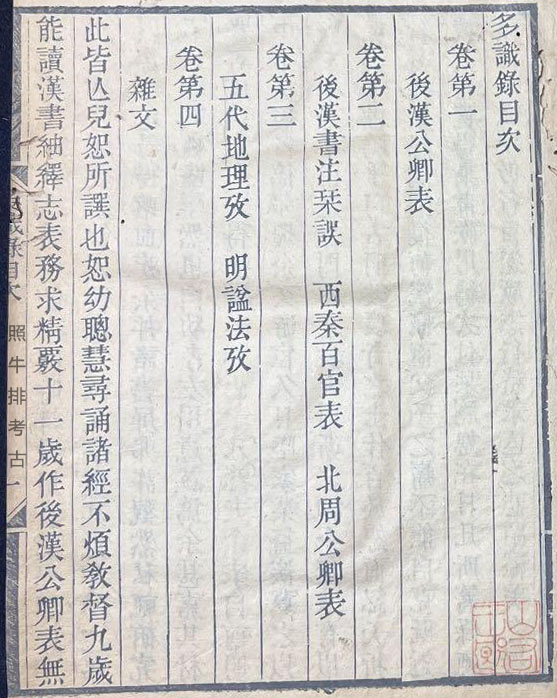 多識錄目次
卷第一
後漢公卿表
卷第二
後漢書注栞誤 西秦百官表 北周公卿表
卷第三
五代地理攷 明諡法攷
卷第四
雜文
此皆亾兒恕所譔也恕幼聰慧尋誦諸經不煩敎督九歲
能讀漢書紬繹志表務求精覈十一歲作後漢公卿表無
識錄目次
照牛排考古
一